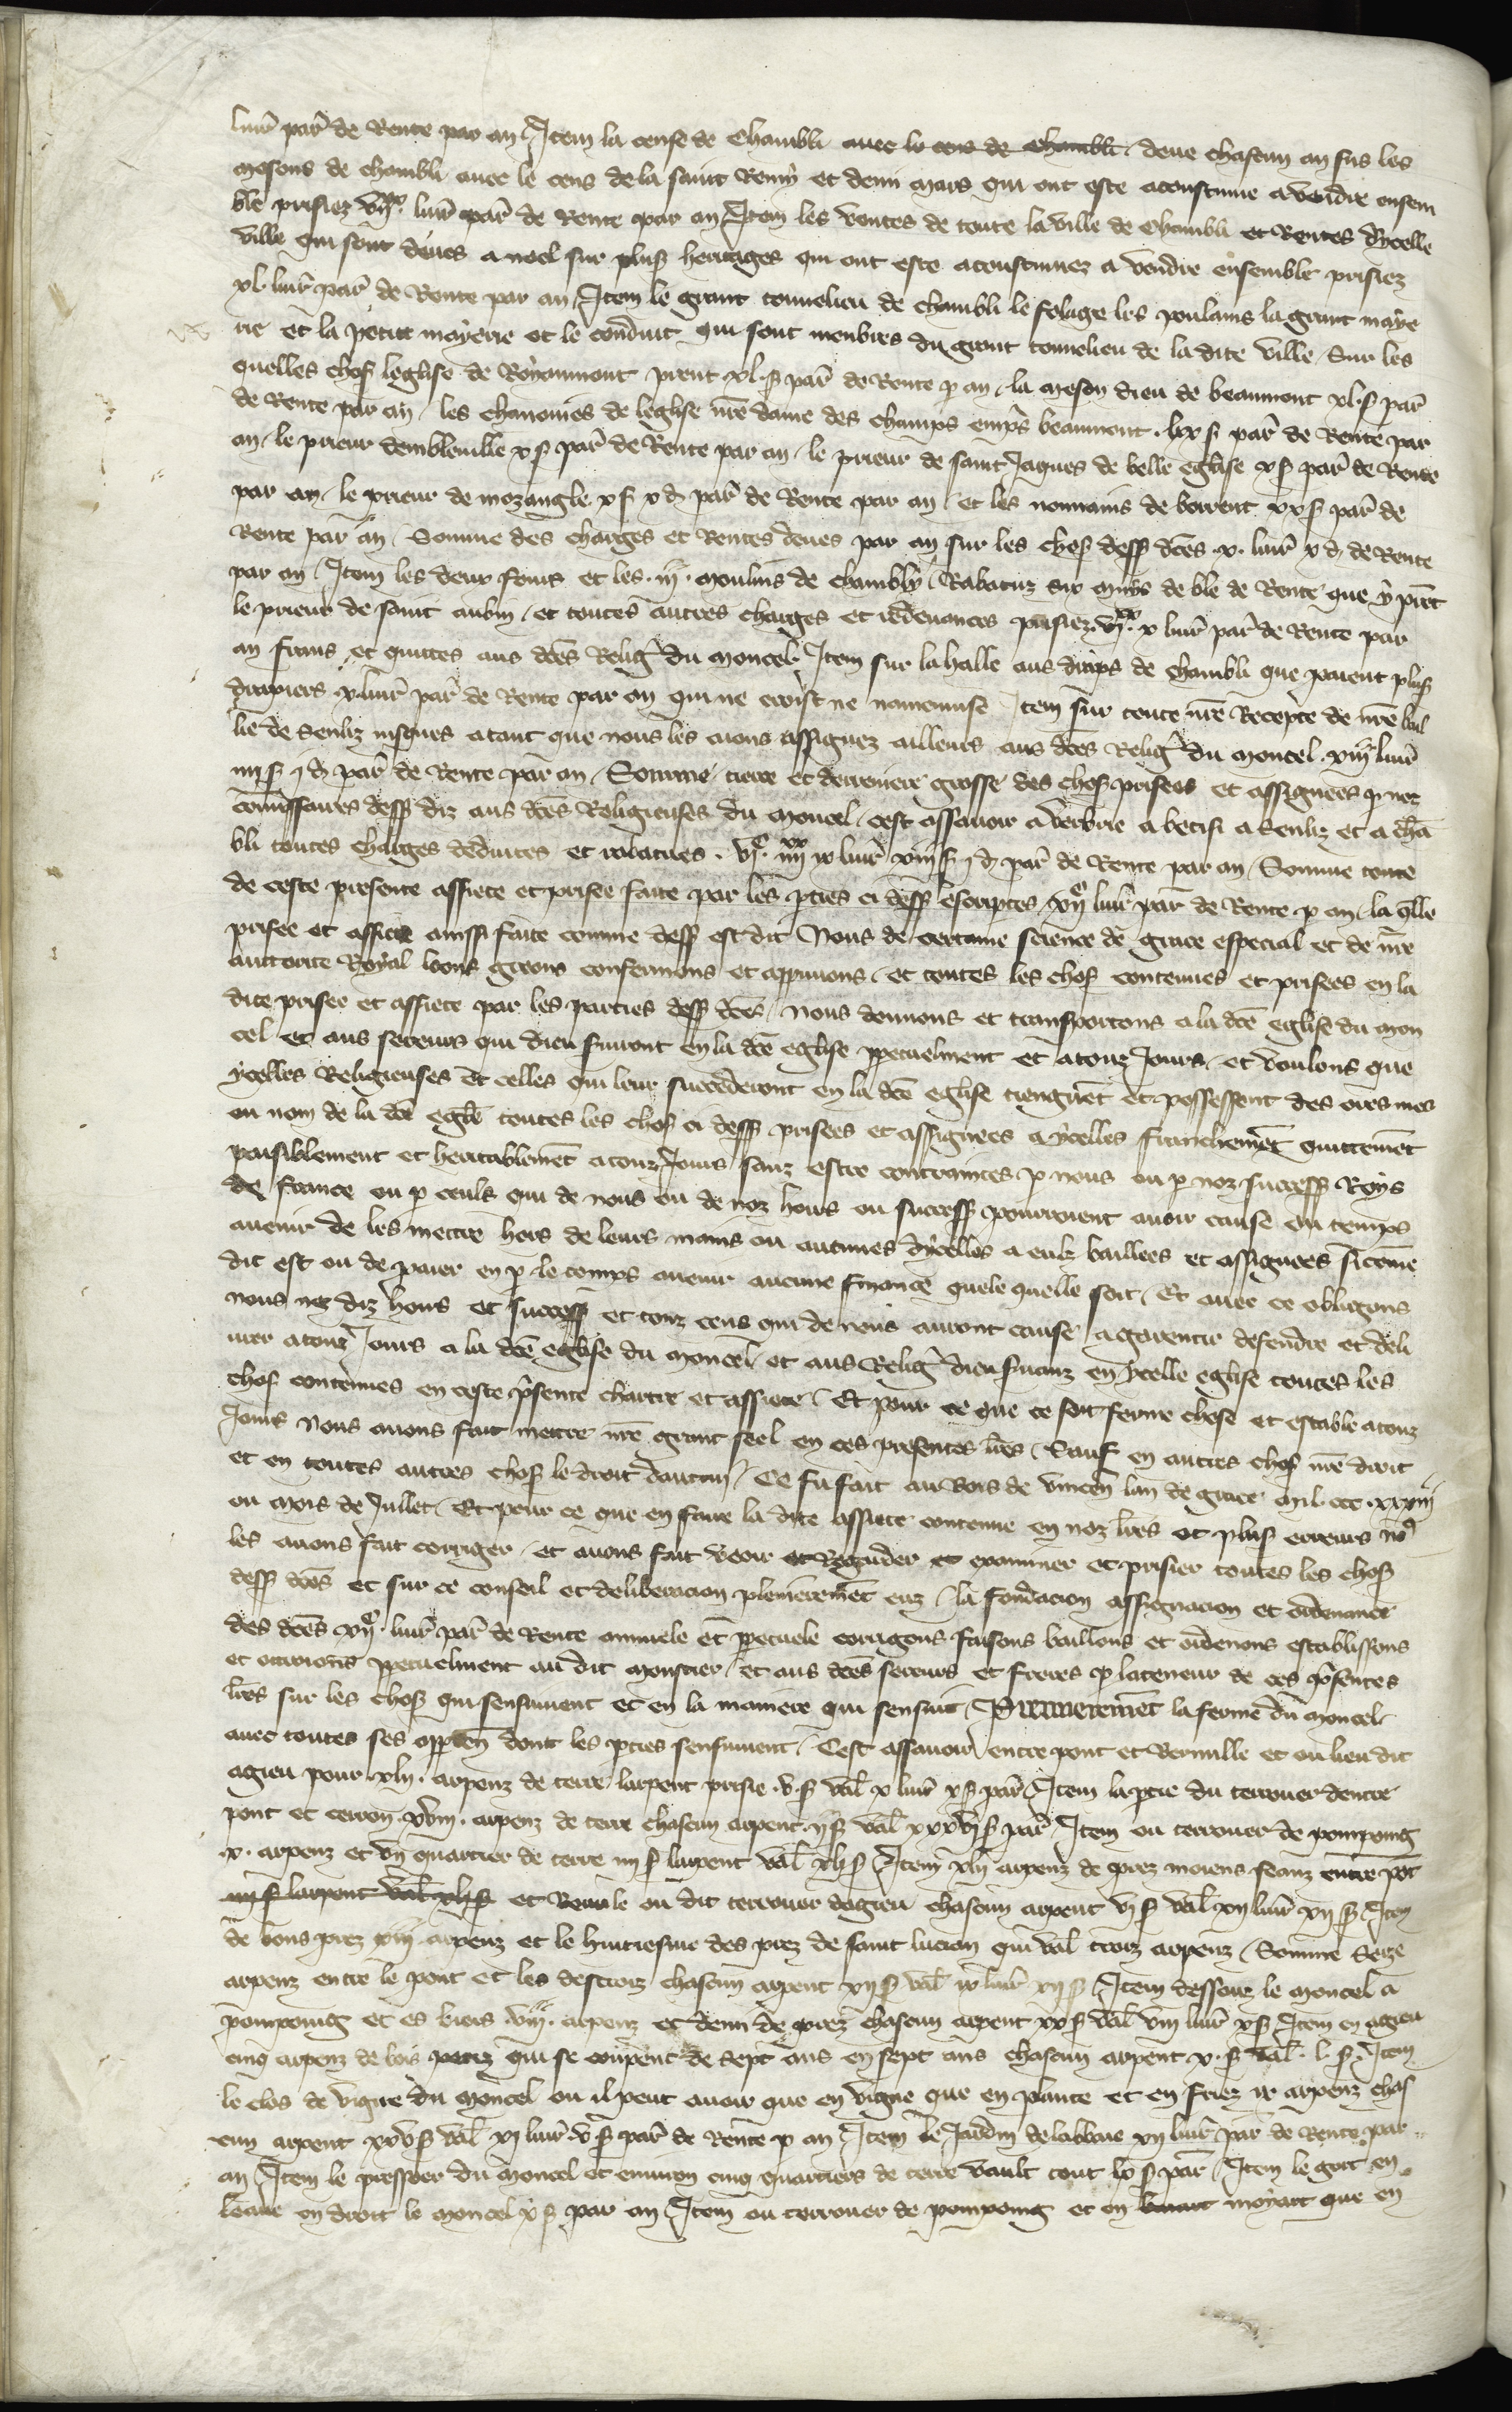 livr par de Rente par an / Item la cense de Chambli avec le cens de Chambli deue chascun an sus les
mesons de chambli avec le cens de la saint Remy et demi mars qui ont este acoustume a vendre ensem
ble prisiez livr par de Rente par an / Item les ventes de toute la ville de Chambli et Rentes dycelle
ville qui sont deues a noel sur plus heritages qui ont este acoustumez a vendre ensemble prisiez
xl livr par de Rente par an / Item le grant tonnelieu de chambli le folage les poulains la grant maye
rie et la petite mayerie et le conduit qui sont menbres du grant tonnelieu de la dite ville / Sur les
quelles chos leglise de Royaumont prent xl s par de Rente p an / la meson dieu de beaumont xl s par
de Rente par an / les chanoines de leglise nre dame des champs empres beaumont lx s par de Rente par
an / le prieur dambleville x s par de Rente par an / le prieur de saint Jaques de belle eglise x s par de Rente
par an / le prieur de mozangle x s x d par de Rente par an / et les nonnains de borrent xx s par de
Rente par an / Somme des charges et Rentes deues par an sur les chos dess dces x livr x d de Rente
par an / Item les deux fours et les iij moulins de chambly / Rabatuz six muys de ble de Rente que y prent
le prieur de saint aubin / et toutes autres charges et redevances prisiez x livr par de Rente par
an frans et quittes aus dces Relig du moncel / Item sur la halle aus draps de chambli que paient plus
drapiers x livr par de Rente par an qui ne croist ne namenuise Item sur toute nre Recepte de nre bail
lie de Senliz jusques a tant que nous les aions assignez ailleurs aus dces Relig du moncel xiiij livr
iiij s j d par de Rente par an / Somme tierce et derreniere grosse des chos prisees et assignees p noz
commissaires dess diz aus dces Religieuses du moncel cest assavoir a verberie a betisi a Senliz et a cha
bli toutes charges deduites et rabatues livr xiiij s j d par de Rente par an / Somme toute
de ceste presente assiete et prisee faite par les pties ci dess escriptes livr par de Rente p an / la qlle
prisee et assiete ainssi faite comme dess est dit Nous de certaine science de grace especial et de nre
auctorite Royal loons greons confermons et approuvons / et toutes les chos contenues et prisees en la
dite prisee et assiete par les parties dess dces / nous donnons et transportons a la dce eglise du mon
cel et aus sereurs qui dieu servront en la dce eglise ppetuelment et a touz Jours / et voulons que
ycelles Religieuses et celles qui leur succederont en la dce eglise tiengnet et possessent des ores mes
ou nom de la dce eglise toutes les chos ci dess prisees et assignees a ycelles franchemet quittemet
paisiblement et heritablemet a touz Jours sanz estre contraintes p nous ou p noz success Roys
de france ou p ceuls qui de nous ou de noz hoirs ou success pourroient avoir cause ou temps
avenir de les mettre hors de leurs mains ou aucunes dycelles a eulz baillees et assignees sicome
dit est ou de paier en p le temps avenir aucune finance quele quelle soit / Et avec ce obligons
nous noz diz hoirs et success et touz ceus qui de nous auront cause a garentir defendre et deli
vrer a touz Jours a la dce eglise du moncel et aus Relig dieu servanz en ycelle eglise toutes les
chos contenues en ceste psente chartre et assiete / Et pour ce que ce soit ferme chose et estable a touz
Jours Nous avons fait mettre nre grant seel en ces presentes lres / Sauf en autres chos nre droit
et en toutes autres chos le droit dautrui / Ce fu fait au Bois de vincen lan de grace mil ccc xxxiiij
ou mois de Juillet / Et pour ce que en faire la dite assiete contenue en noz lres ot plus erreurs no
les avons fait corriger / et avons fait veoir et Regarder et examiner et prisier toutes les chos
dess dces et sur ce conseil et deliberacion plenieremet euz / la fondacion assignacion et ordenance
des dces livr par de Rente annuele et ppetuele corrigons faisons baillons et ordenons establissons
et ottroions ppetuelment au dit moustier / et aus dces sereurs et freres p la teneur de ces psentes
lres sur les chos qui sensuivent et en la maniere qui sensuit / Premieremet la ferme du moncel
avec toutes ses appten dont les pties sensuivent / Cest assavoir entre pont et Bermille et ou lieu dit
agieu pour xlij arpenz de terre larpent prisie v s val x livr x s par / Item la ptie du terrouer dentre
pont et cerron xviij arpenz de terre chascun arpent ij s val xxxvj s par / Item ou terrouer de pompoing
x arpenz et un quartier de terre iiij s larpent val xlj s / Item xlij arpenz de prez moiens seanz entre pot
iiij s larpent val xlj s et Roule ou dit terrouer dagieu chascun arpent vj s val xij livr xij s / Item
de bons prez xiij arpenz et le huitiesme des prez de saint lucien qui val troiz arpenz / Somme Seize
arpenz entre le pont et les destroiz chascun arpent xij s val ix livr xij s / Item dessouz le moncel a
pompoing et es viviers arpenz et demi de prez chascun arpent xx s val viij livr x s / Item en agieu
cinq arpenz de bois perez qui se coupent de sept ans en sept ans chascun arpent x s val l s / Item
le clos de vigne du moncel ou il peut avoir que en vigne que en plante et en friez ix arpenz chas
cun arpent xxv s val xj livr v s par de Rente p an / Item le Jardin de labbaie xij livr par de Rente par
an / Item le pressoer du moncel et environ cinq quartiers de terre vault tout lx s par / Item le gort en
leaue en droit le moncel x s par an / Item ou terrouer de pompoing et en moyart que en